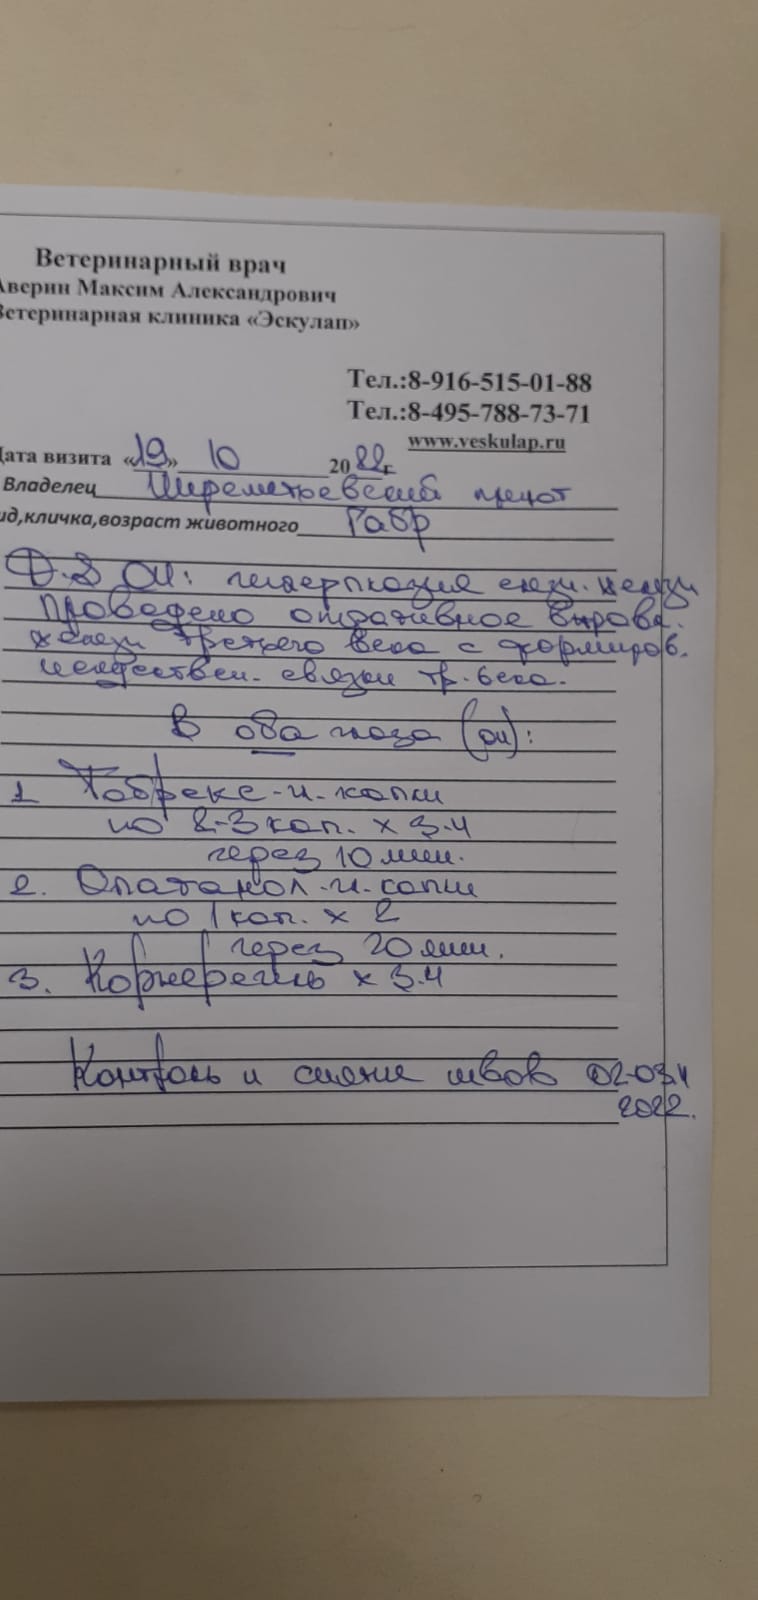 Ветеринарный врач
Аверин Максим Александрович
Ветеринарная клиника «Эскулап»
Тел.:8-916-515-01-88
Тел.:8-495-788-73-71
www.veskulap.ru
Дата визита «19» 10 2022г
Владелец Шереметьевский приют
ид,кличка,возраст животного Габр
D.S OU: гиперплазия слезн. железы
Проведено оперативное вправл.
железы третьего века с формиров.
искусствен. связки тр. века.
В оба глаза (ou):
1. Тобрекс-и-капли
по 2-3 кап. х 3-4
через 10 мин.
2. Опатанол-и-капли
по 1 кап. х 2
через 20 мин.
3. Корнерегель х 3-4
Контроль и снятие швов 02-03.11
2022.